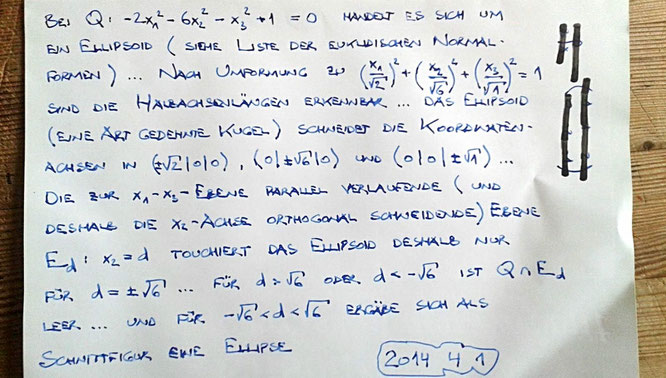 BEI Q: -2x₁² - 6x₂² - x₃² + 1 = 0 HANDELT ES SICH UM
EIN ELLIPSOID (SIEHE LISTE DER EUKLIDISCHEN NORMAL-
FORMEN) ... NACH UMFORMUNG ZU (x₁/√2)² + (x₂/√6)² + (x₃/√1)² = 1
SIND DIE HALBACHSENLÄNGEN ERKENNBAR ... DAS ELLIPSOID
(EINE ART GEDEHNTE KUGEL) SCHNEIDET DIE KOORDINATEN-
ACHSEN IN (±√2|0|0), (0|±√6|0) UND (0|0|±√1) ...
DIE ZUR x₁-x₃-EBENE PARALLEL VERLAUFENDE (UND
DESHALB DIE x₂-ACHSE ORTHOGONAL SCHNEIDENDE) EBENE
E_d: x₂ = d TOUCHIERT DAS ELLIPSOID DESHALB NUR
FÜR d = ±√6 ... FÜR d > √6 ODER d < -√6 IST Q ∩ E_d
LEER ... UND FÜR -√6 < d < √6 ERGÄBE SICH ALS
SCHNITTFIGUR EINE ELLIPSE
2014 4 1